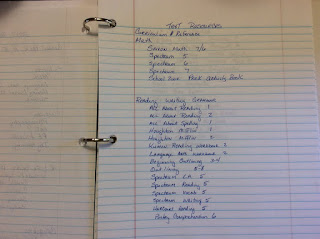 TEXT Resources
Curriculum & Reference
Math
Saxon Math 7/6
Spectrum 5
Spectrum 6
Spectrum 7
School Zone Math Activity Book
Reading Writing Grammar
All About Reading 1
All About Reading 2
All About Spelling 1
Houghton Mifflin 1
Houghton Mifflin 2
Reading Workbook 2
Language Arts Workbook 2
Beginning Outlining 3-4
5-8
Spectrum L.A. 5
Spectrum Reading 5
Spectrum Vocab 5
Spectrum Writing 5
Reading 5
Comprehension 6